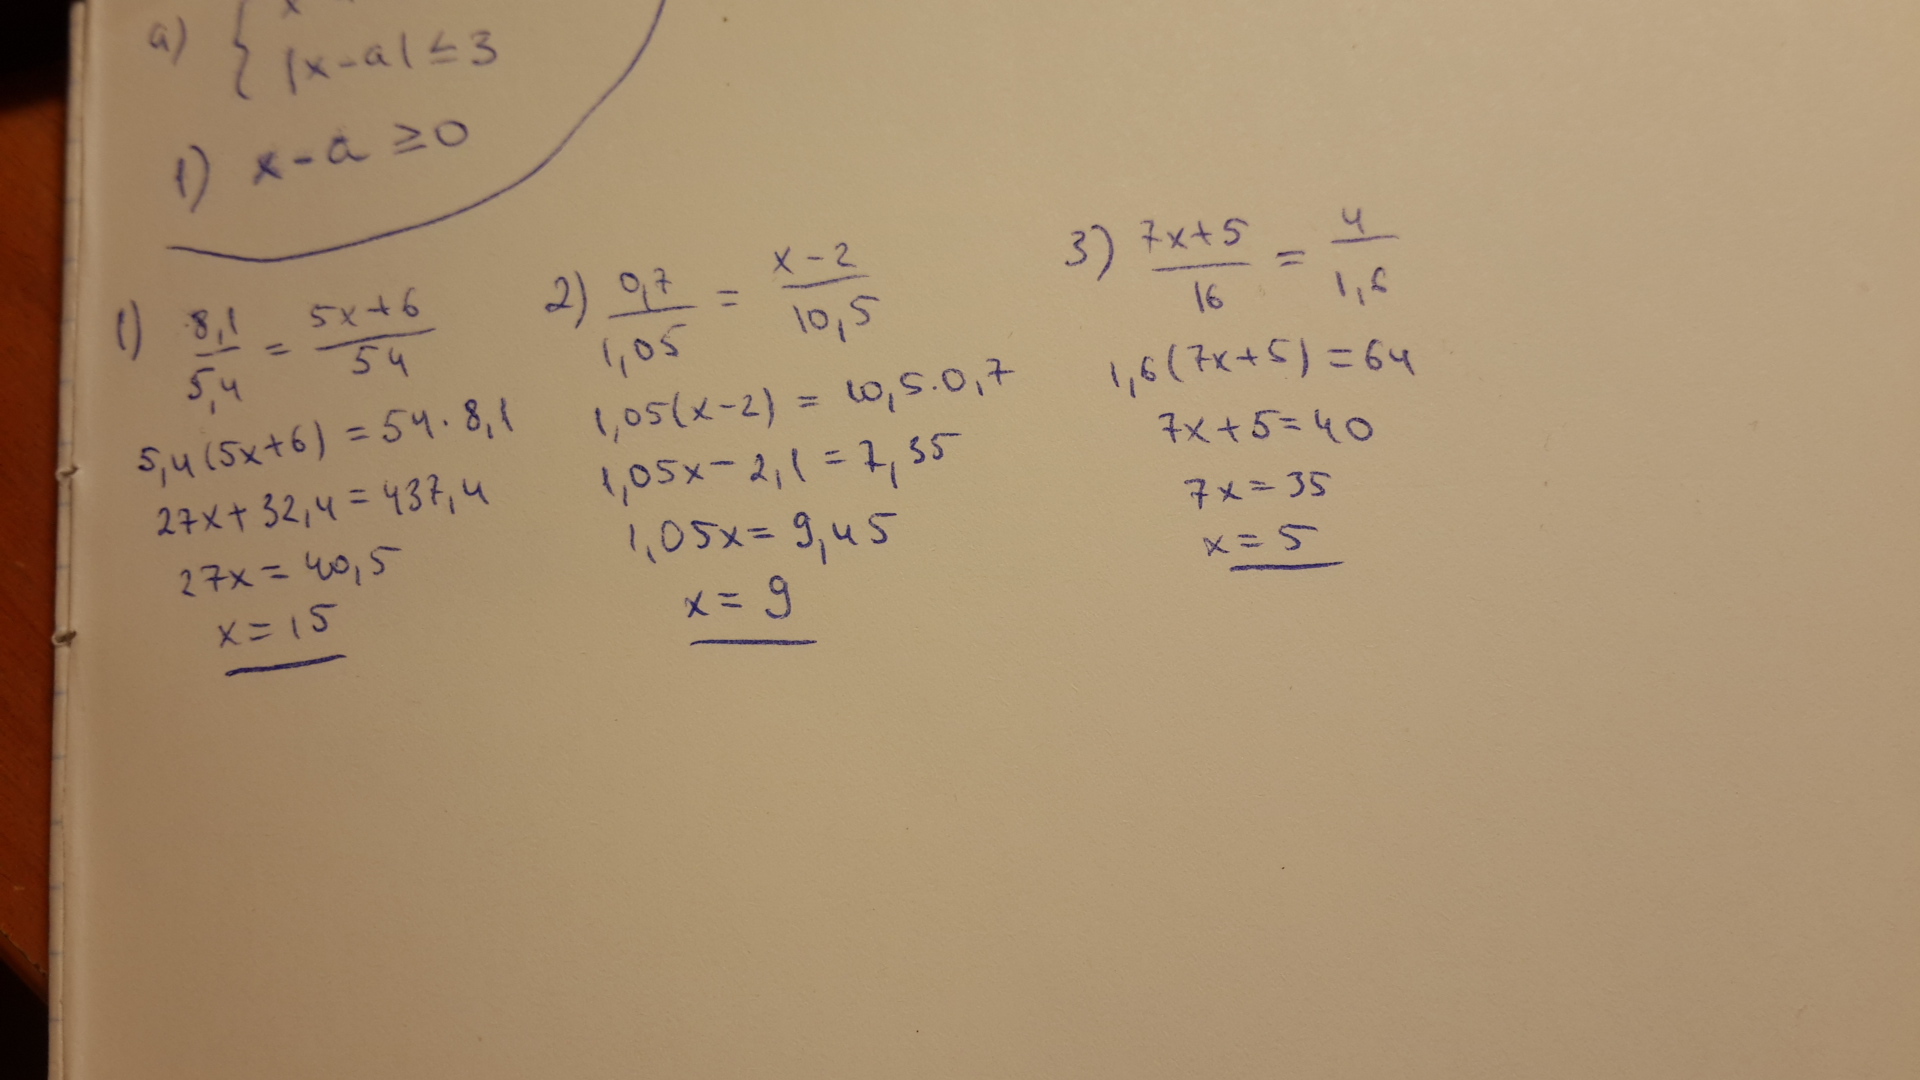 а) {
|x-a| ≤ 3
1) x-a ≥ 0
1) 8,1/5,4 = (5x+6)/54
5,4(5x+6) = 54·8,1
27x+32,4 = 437,4
27x = 40,5
x = 15
2) 0,7/1,05 = (x-2)/10,5
1,05(x-2) = 10,5·0,7
1,05x-2,1 = 7,35
1,05x = 9,45
x = 9
3) (7x+5)/16 = 4/1,6
1,6(7x+5) = 64
7x+5 = 40
7x = 35
x = 5